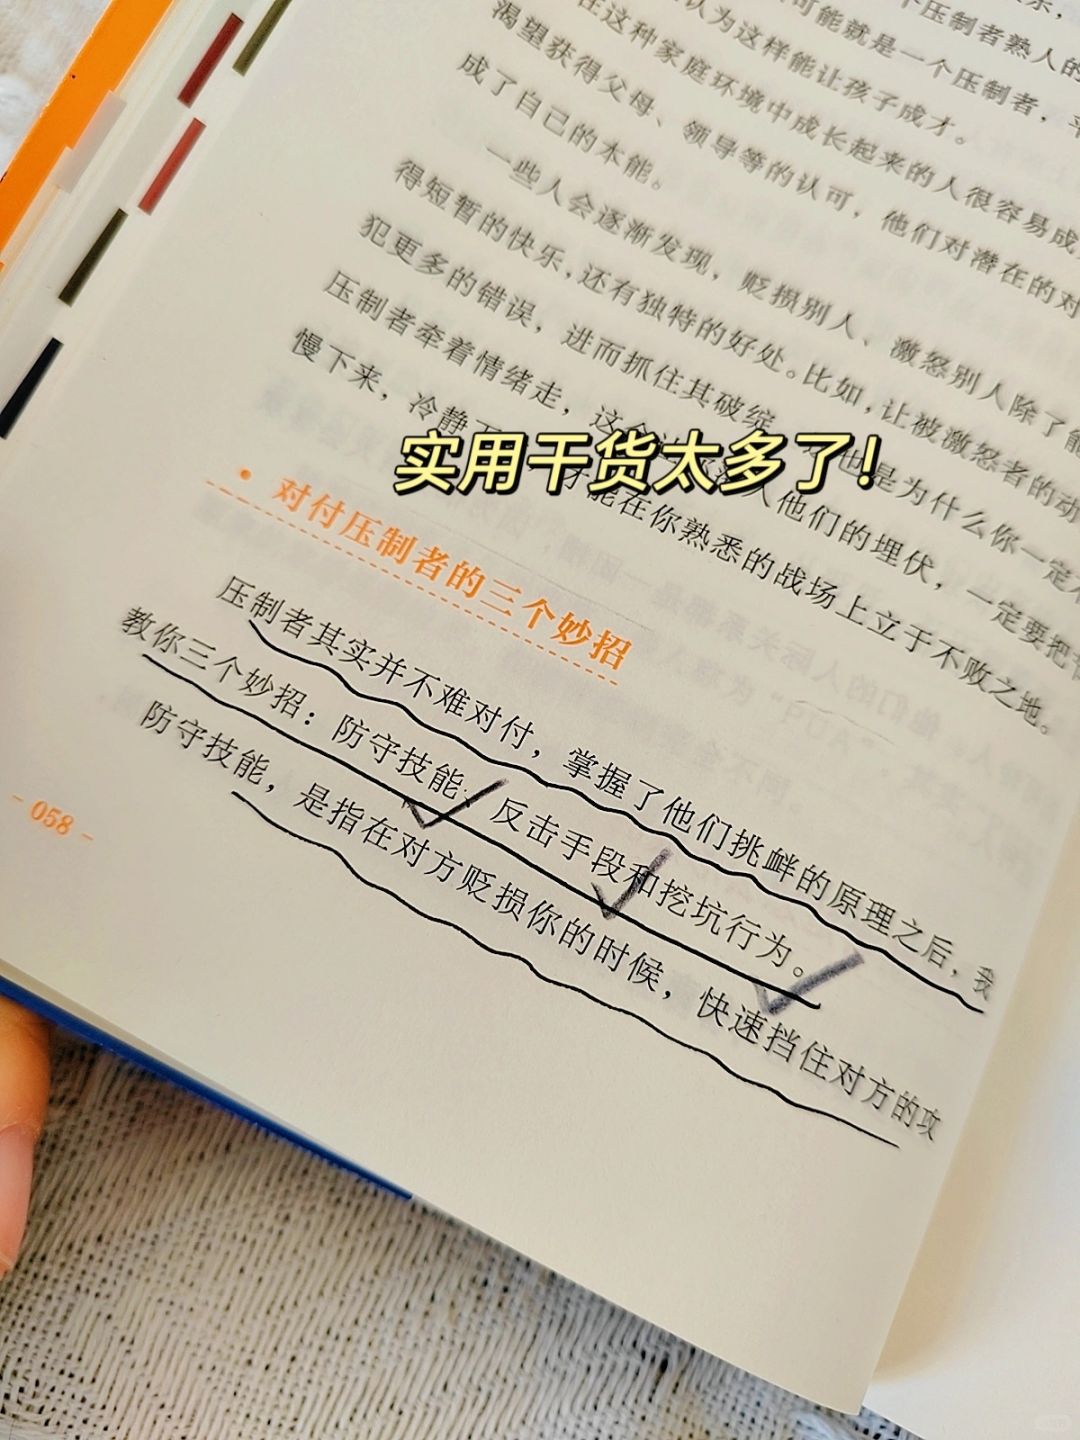 个压制者熟人的
可能就是一个压制者,
认为这样能让孩子成才。
在这种家庭环境中成长起来的人很容易成
渴望获得父母、领导等的认可,他们对潜在的对
成了自己的本能。
一些人会逐渐发现,贬损别人、激怒别人除了能
得短暂的快乐,还有独特的好处。比如,让被激怒者的动
犯更多的错误,进而抓住其破绽。这也是为什么你一定不
压制者牵着情绪走,这会 人他们的埋伏,一定要把节
慢下来,冷静下 才能在你熟悉的战场上立于不败之地。
实用干货太多了!
• 对付压制者的三个妙招
压制者其实并不难对付,掌握了他们挑衅的原理之后,我
教你三个妙招:防守技能、反击手段和挖坑行为。
防守技能,是指在对方贬损你的时候,快速挡住对方的攻
- 058 -